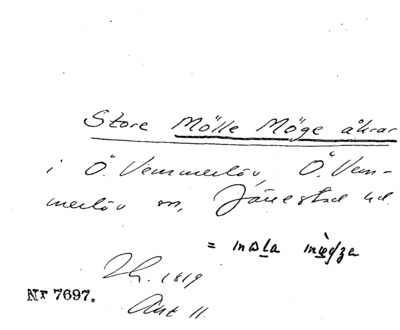 Store Mölle Möge åkrar
i Ö. Vemmerlöv, Ö. Vem-
merlöv sn, Järrestad hd.
= 
1819
Nr 7697. Akt 11.